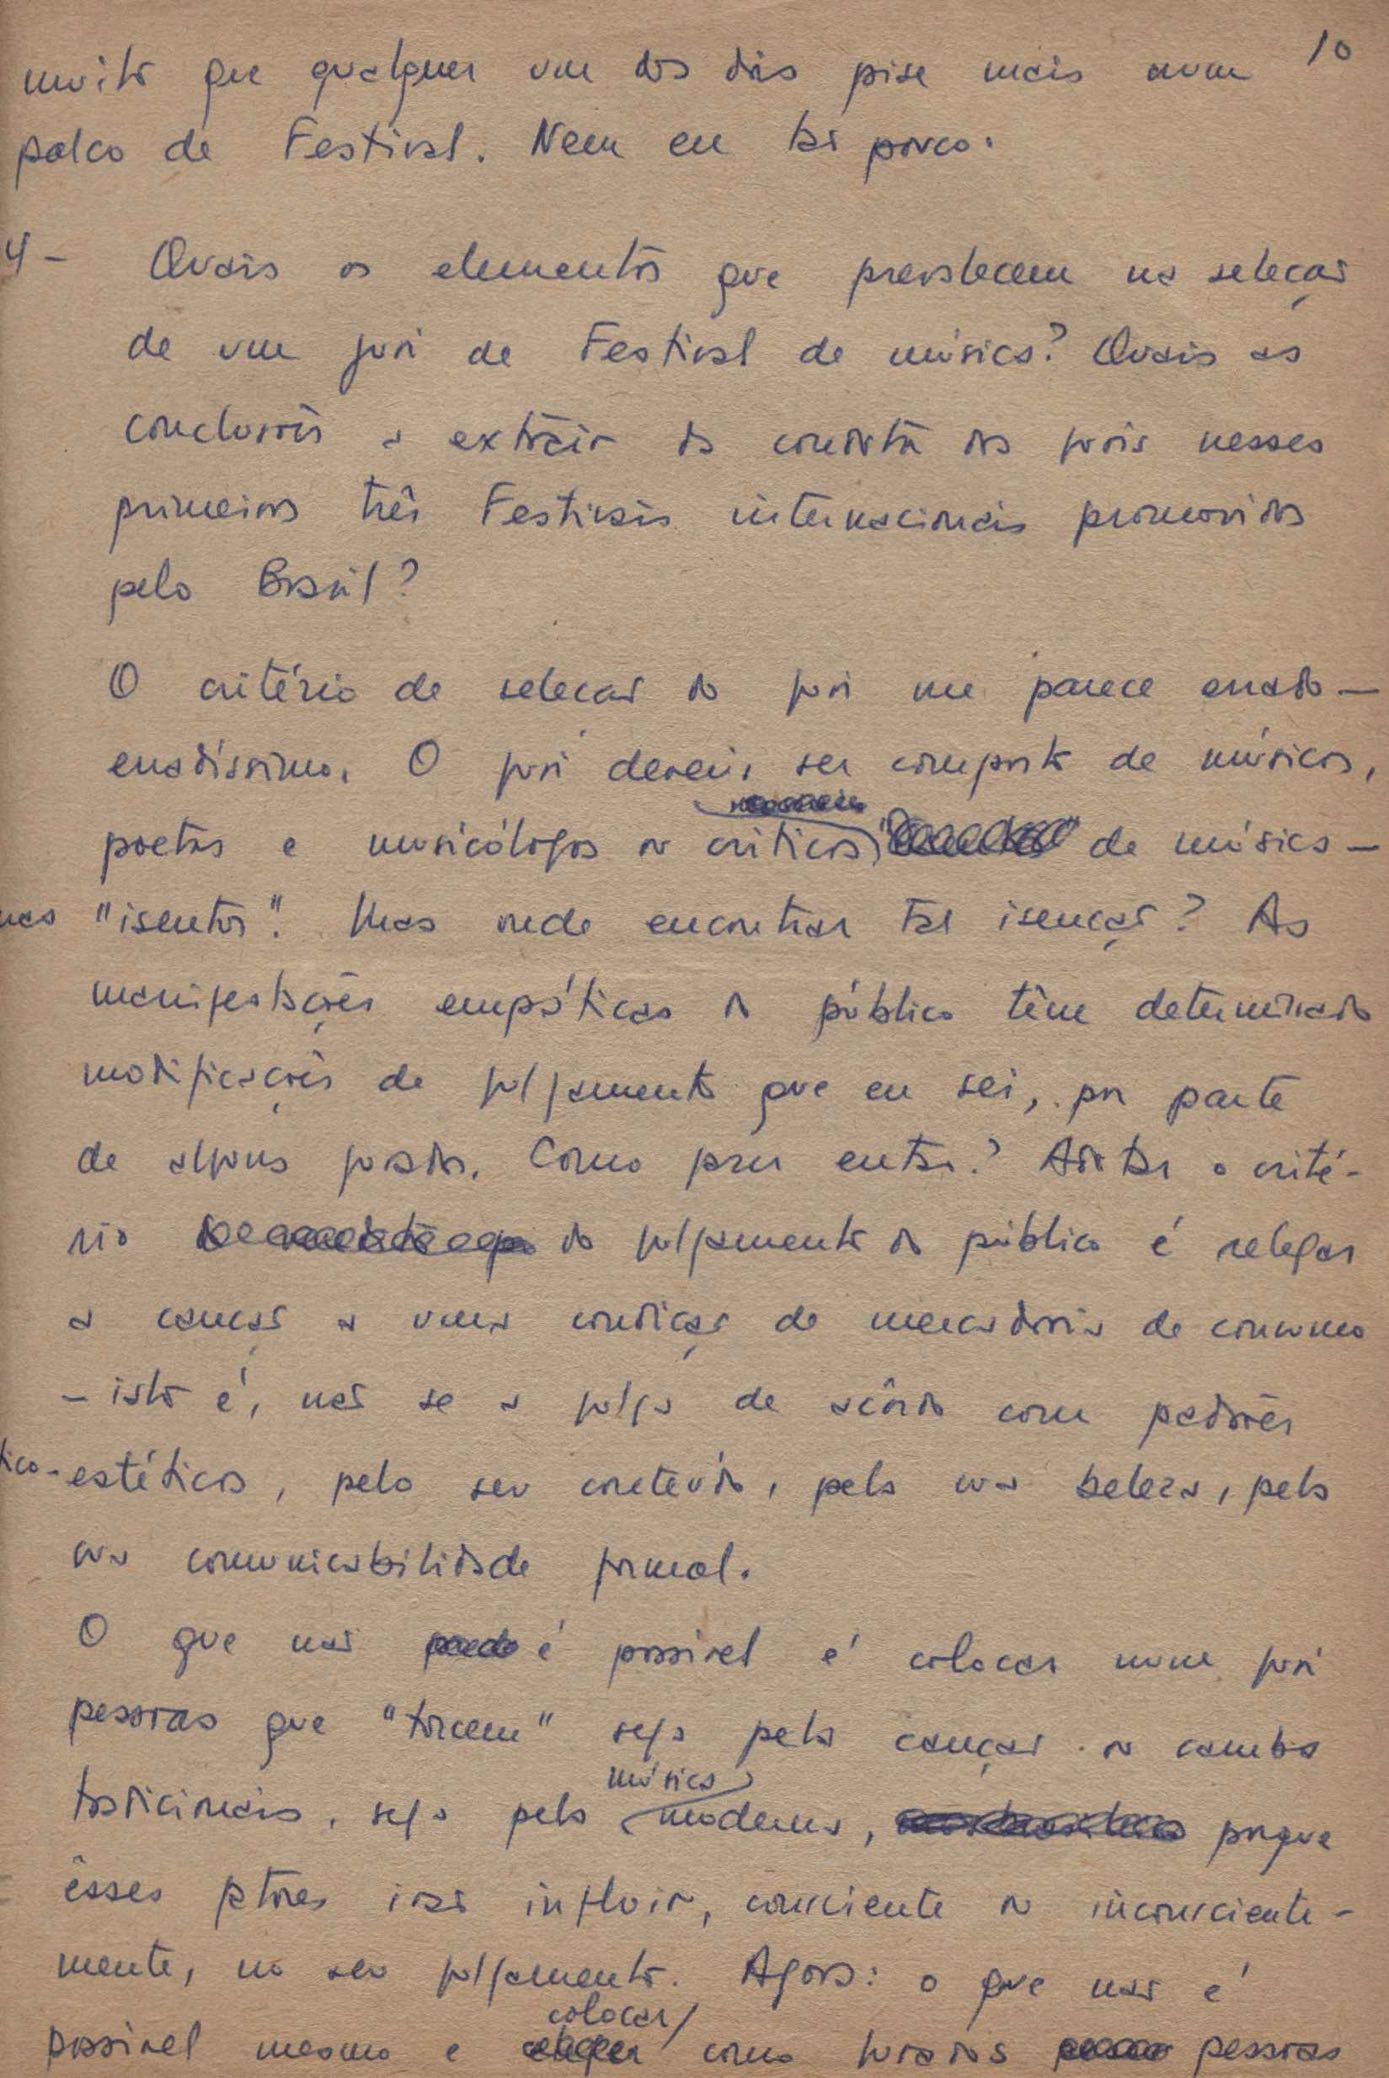 10
muito que qualquer um dos dois pise mais num
palco de Festival. Nem eu tão pouco.
4 - Quais os elementos que prevalecem na seleção
de um juri de Festival de música? Quais as
conclusões a extrair da conduta dos juris nesses
primeiros três Festivais internacionais promovidos
pelo Brasil?
O critério de seleção do juri me parece errado —
erradíssimo. O juri deveria ser composto de músicos,
poetas e musicólogos ou críticos de música —
mas "isentos". Mas onde encontrar tal isenção? As
manifestações empáticas do público têm determinado
modificações de julgamento que eu sei, por parte
de alguns jurados. Como fazer então? Adotar o crité-
rio do julgamento do público é relegar
a canção a uma condição de mercadoria de consumo
- isto é, não se a julga de acôrdo com padrões
estéticos, pelo seu conteúdo, pela sua beleza, pela
sua comunicabilidade formal.
O que não é possível é colocar num juri
pessoas que "torcem" seja pela canção ou samba
tradicionais, seja pela música moderna, porque
êsses fatores irão influir, consciente ou inconsciente-
mente, no seu julgamento. Agora: o que não é
possível mesmo é colocar como jurados pessoas